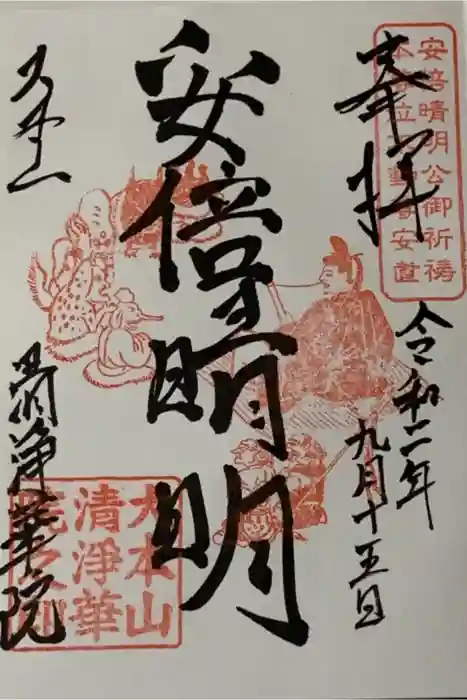 安倍晴明公御祈祷
本尊泣不動尊安置
奉拝
令和二年
九月十五日
安倍晴明
大本山
清淨華院
大本山
清淨華
院之印